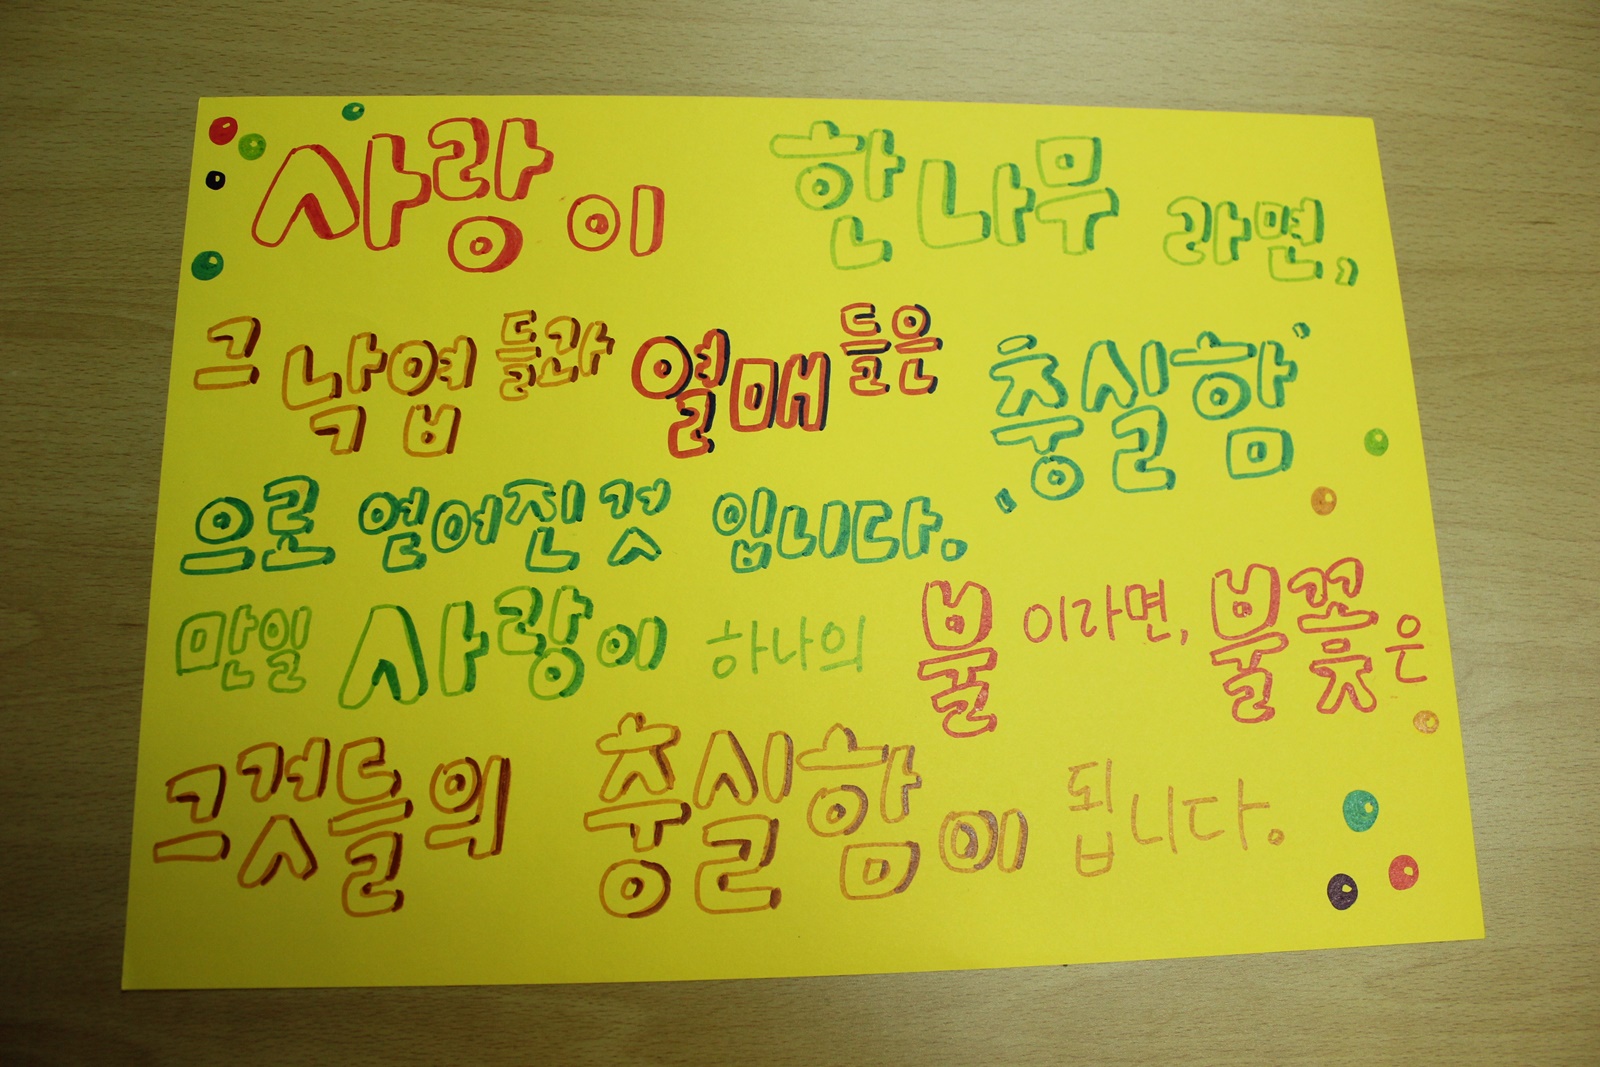 사랑이 한나무라면,
그 낙엽들과 열매들은 '충실함'
으로 얻어진것 입니다.
만일 사랑이 하나의 불이라면, 불꽃은
그것들의 충실함이 됩니다.